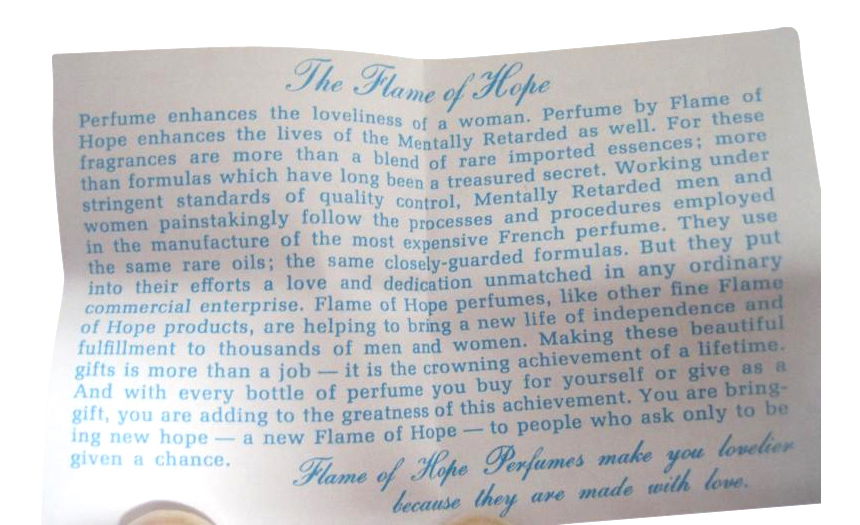 The Flame of Hope
Perfume enhances the loveliness of a woman. Perfume by Flame of
Hope enhances the lives of the Mentally Retarded as well. For these
fragrances are more than a blend of rare imported essences; more
than formulas which have long been a treasured secret. Working under
stringent standards of quality control, Mentally Retarded men and
women painstakingly follow the processes and procedures employed
in the manufacture of the most expensive French perfume. They use
the same rare oils; the same closely-guarded formulas. But they put
into their efforts a love and dedication unmatched in any ordinary
commercial enterprise. Flame of Hope perfumes, like other fine Flame
of Hope products, are helping to bring a new life of independence and
fulfillment to thousands of men and women. Making these beautiful
gifts is more than a job — it is the crowning achievement of a lifetime.
And with every bottle of perfume you buy for yourself or give as a
gift, you are adding to the greatness of this achievement. You are bring-
ing new hope — a new Flame of Hope — to people who ask only to be
given a chance.
Flame of Hope Perfumes make you lovelier
because they are made with love.